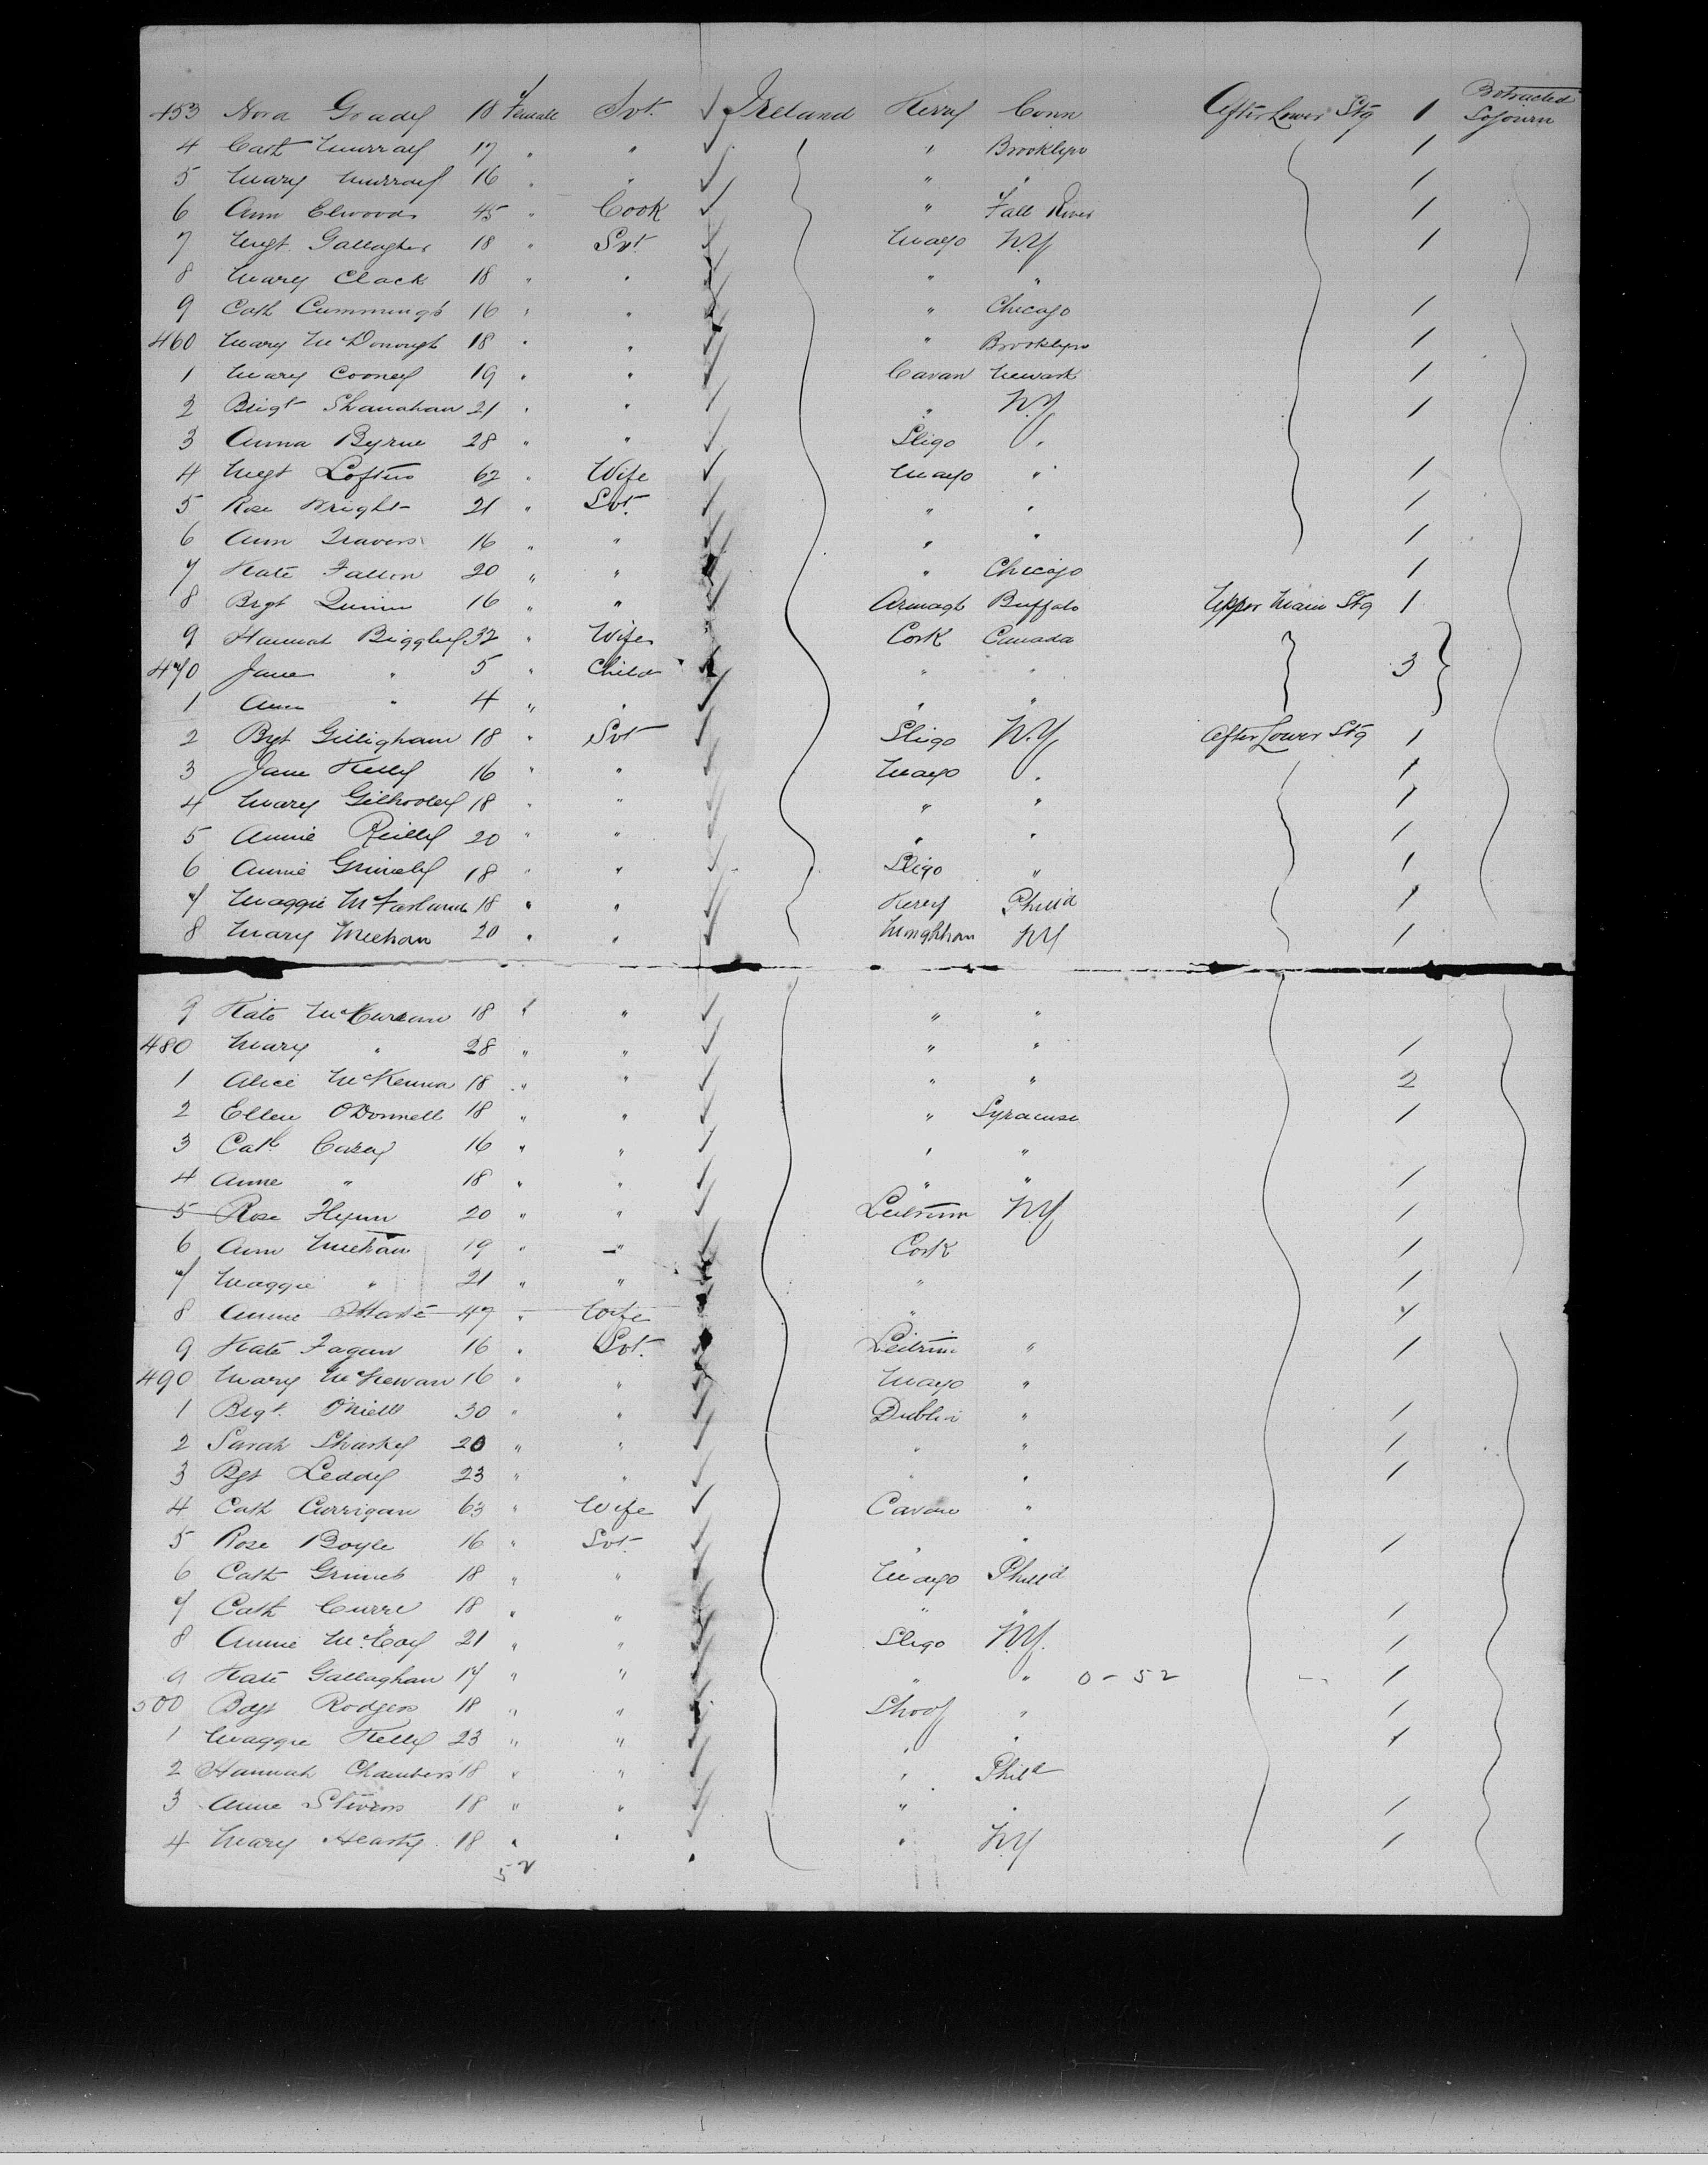 453 Nora Grady 18 Female Svt. Ireland Kerry Conn After Lower Stg 1 Protracted Sojourn
4 Cath Murray 17 " " " Brooklyn 1
5 Mary Murray 16 " " " " 1
6 Ann Elwood 45 " Cook " Fall River 1
7 Mgt Gallagher 18 " Svt. Mayo N.Y 1
8 Mary Clack 18 " " " "
9 Cath Cummings 16 " " " Chicago 1
460 Mary McDonough 18 " " " Brooklyn 1
1 Mary Cooney 19 " " Cavan Newark 1
2 Brigt Shanahan 21 " " " N.Y 1
3 Anna Byrne 28 " " Sligo "
4 Mgt Loftus 62 " Wife Mayo " 1
5 Rose Wright 21 " Svt. " " 1
6 Ann Travers 16 " " " " 1
7 Kate Fallon 20 " " " Chicago 1
8 Brgt Quinn 16 " " Armagh Buffalo Upper Main Stg 1
9 Hannah 32 " Wife Cork Canada
470 Jane " 5 " Child " " 3
1 Ann " 4 " " " "
2 Bgt Gilligham 18 " Svt Sligo N.Y After Lower Stg 1
3 Jane Kelly 16 " " Mayo " 1
4 Mary Gilhooley 18 " " " " 1
5 Annie Reilly 20 " " " " 1
6 Annie 18 " " Sligo " 1
7 Maggie McFarland 18 " " Kerry Phild 1
8 Mary Meehan 20 " " NY 1
9 Kate 18 " " " "
480 Mary " 28 " " " " 1
1 Alice McKenna 18 " " " " 2
2 Ellen O'Donnell 18 " " " Syracuse 1
3 Cath Casey 16 " " " "
4 Anne " 18 " " " " 1
5 Rose Flynn 20 " " Leitrim N.Y 1
6 Ann Meehan 19 " " Cork 1
7 Maggie " 21 " " " 1
8 Annie 47 " Wife " 1
9 Kate Fagan 16 " Svt. Leitrim " 1
490 Mary 16 " " Mayo "
1 Brgt. O'Niell 30 " " Dublin " 1
2 Sarah Sharkey 20 " " " " 1
3 Bgt Leddy 23 " " " " 1
4 Cath Corrigan 63 " Wife Cavan "
5 Rose Boyle 16 " Svt. " " 1
6 Cath Grimes 18 " " Mayo Phild
7 Cath 18 " " " " 1
8 Annie McCoy 21 " " Sligo N.Y. 1
9 Kate Gallaghan 17 " " " " 0-52 1
500 Bdgt Rodgers 18 " " " 1
1 Maggie Kelly 23 " " " " 1
2 Hannah Chambers 18 " " " Phila
3 Anne Stivens 18 " " " " 1
4 Mary 18 " " " N.Y 1
52